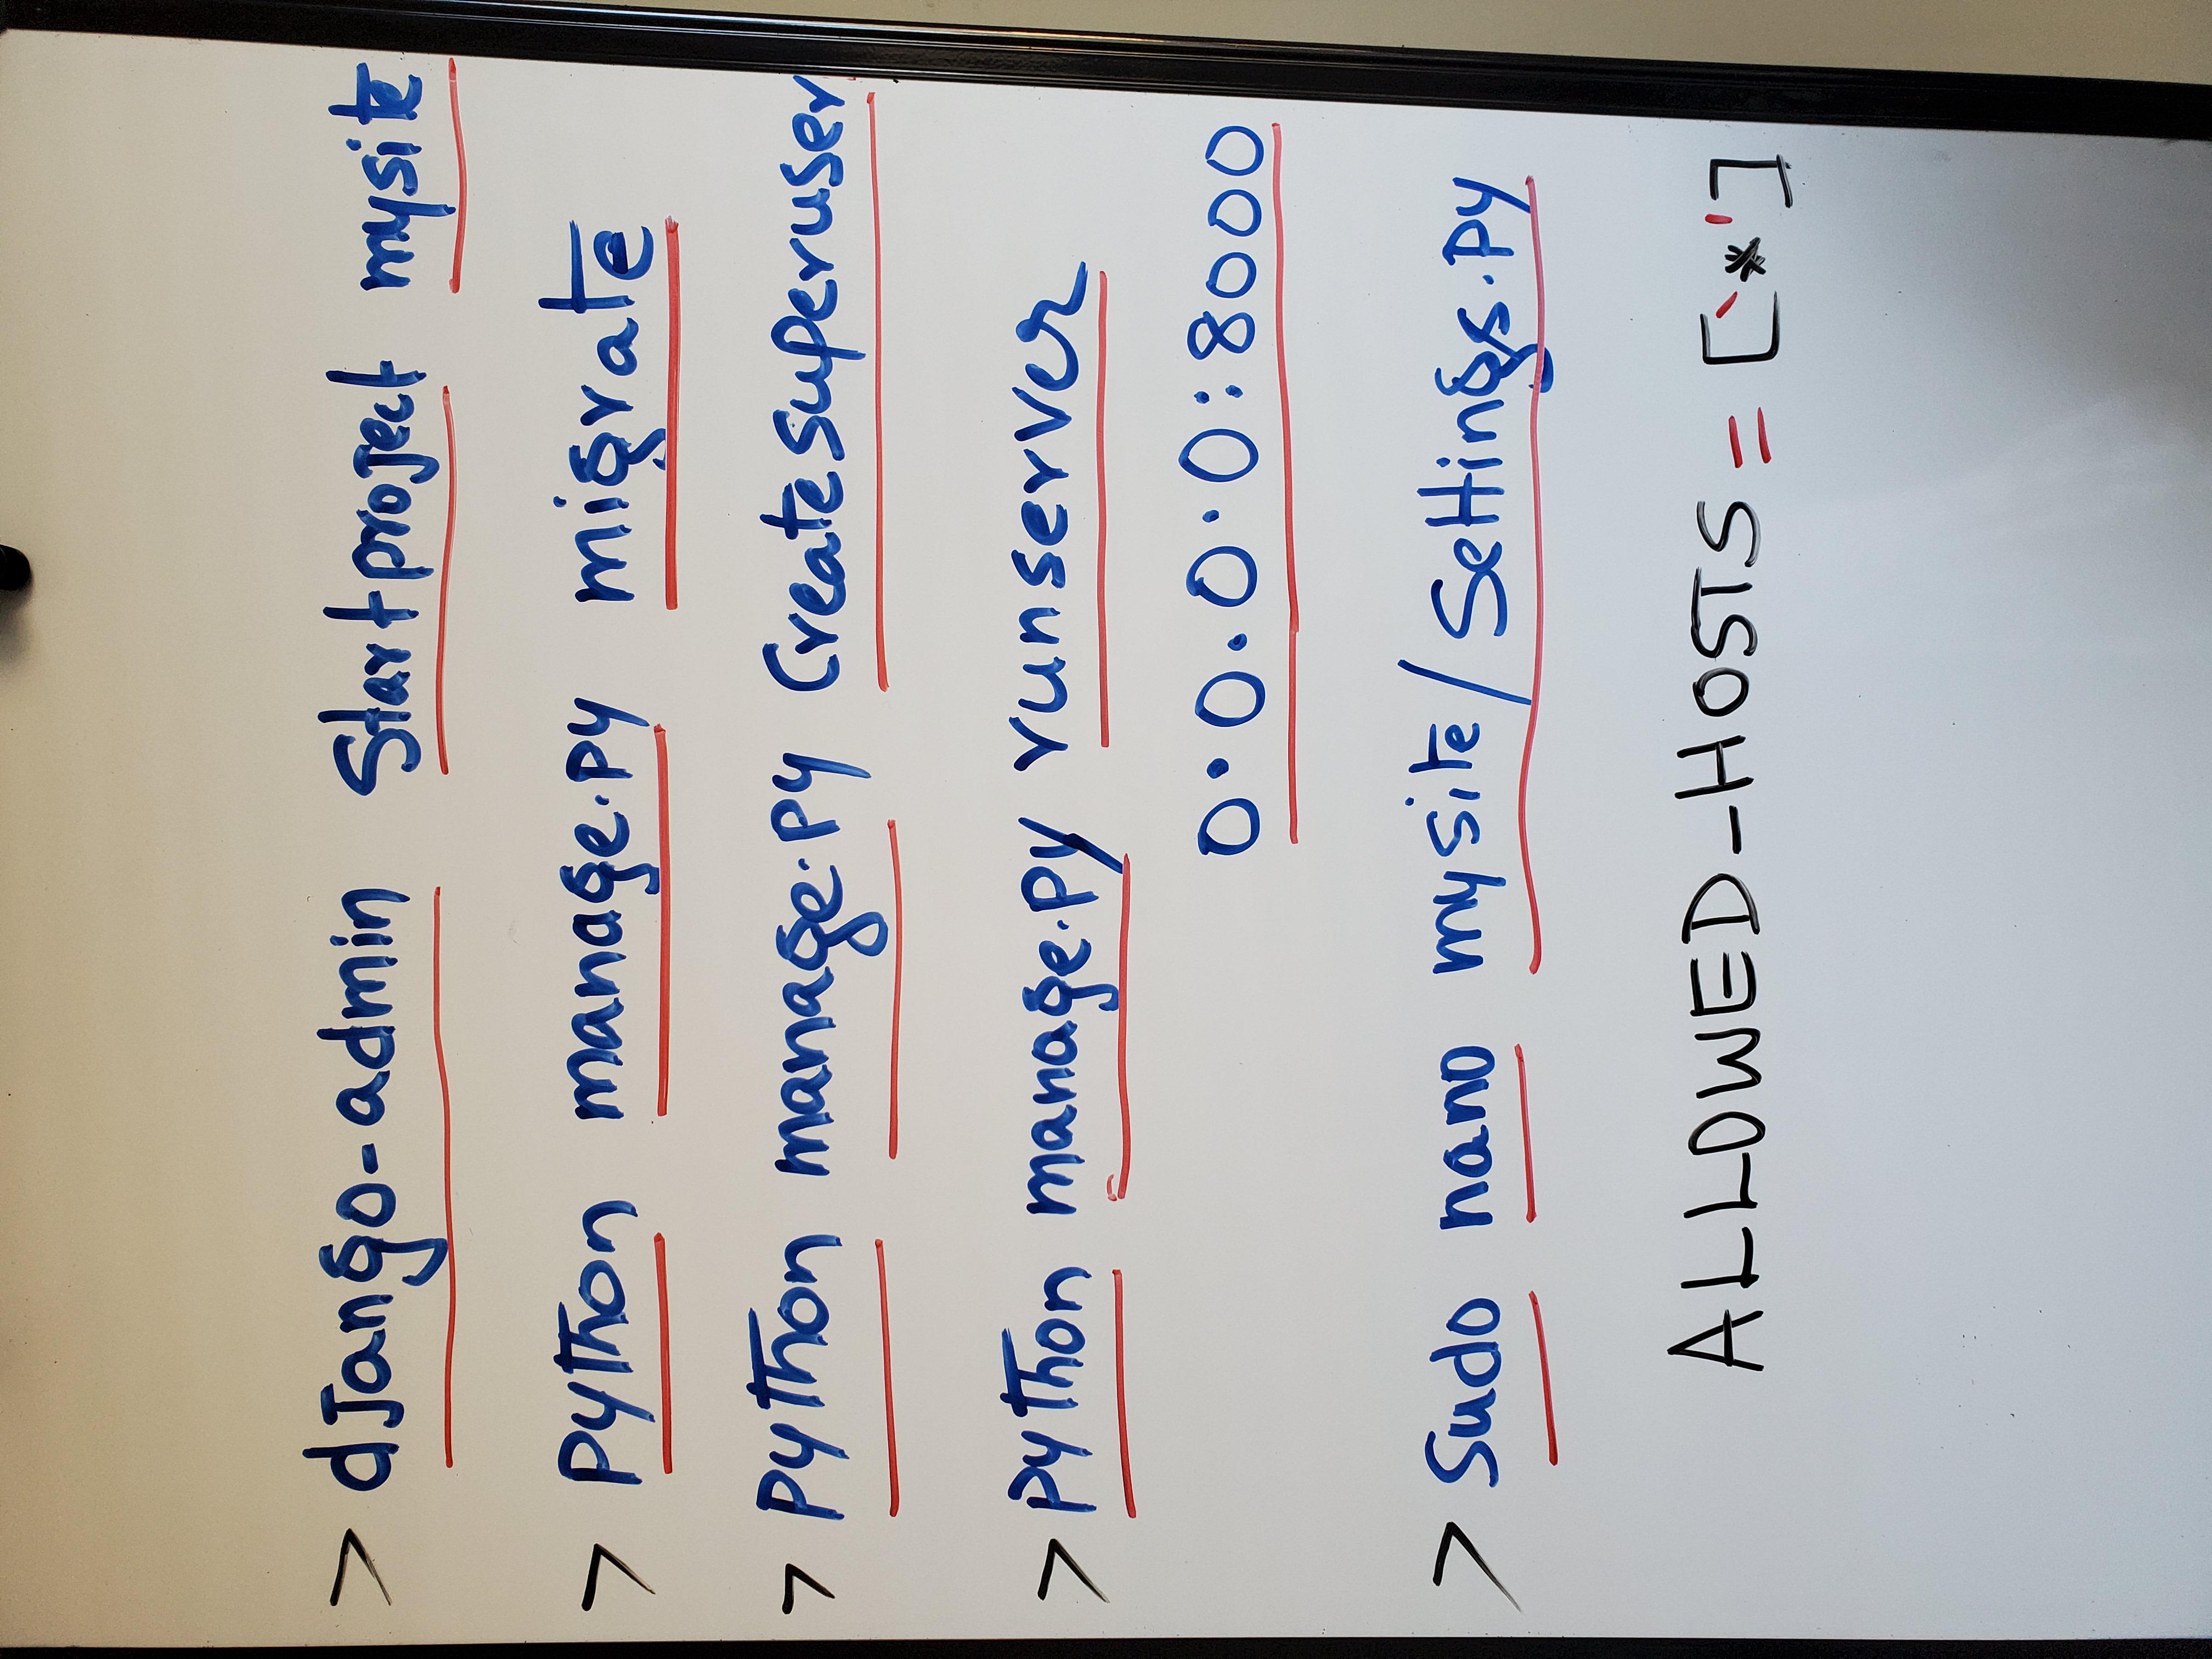 > django-admin startproject mysite
> python manage.py migrate
> python manage.py createsuperuser
> python manage.py runserver
0.0.0.0:8000
> sudo nano mysite/settings.py
ALLOWED_HOSTS = ['*']